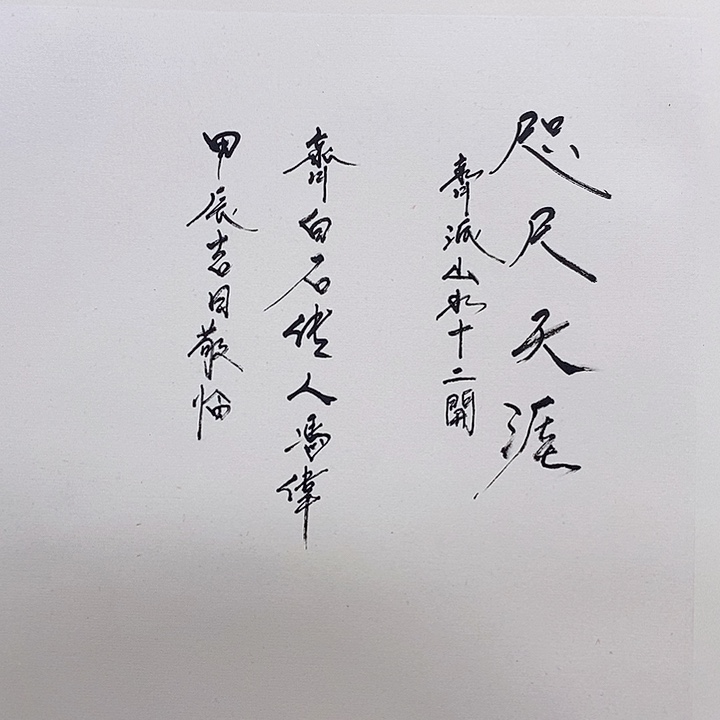 咫尺天涯
齊派山水十二開
齊白石傳人馮偉
甲辰吉日敬怞